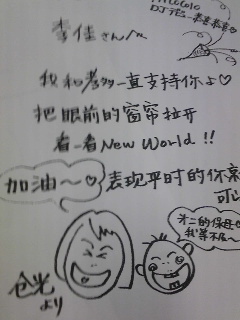 李佳さんへ
我和孝多一直支持你ょ♡
把眼前的窗帘拉开
看一看New World!!
加油~♡
表现平时的你就
可以
才二的保母♡
我等不及~
仓光
より